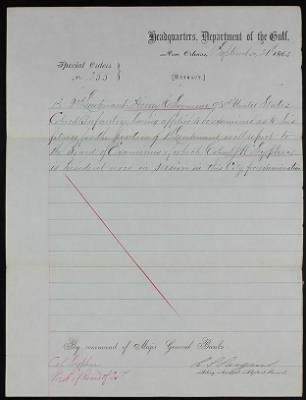 Headquarters, Department of the Gulf,
New Orleans, September 21st 1863
Special Orders
No. 233
[Extract.]
8. 2nd Lieutenant Henry C. United States
Colored Infantry having applied to be examined as to his
fitness for the position of Lieutenant will report to
the Board of Examiners of which Colonel
is President now in session in this City for examination
By command of Major General Banks.
Col.
Pres. of Board of
Acting Assistant Adjutant General.